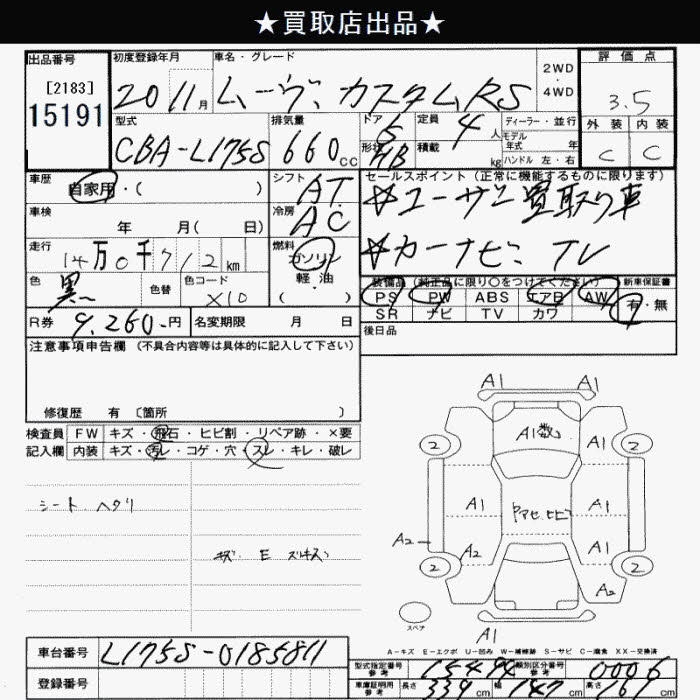 ★買取店出品★
出品番号
[2183]
15191
初度登録年月
20 11月
車名・グレード
ムーヴ カスタム RS
2WD
・
4WD
評価点
3.5
外装 内装
C C
型式
CBA-L175S
排気量
660cc
ドア
5
形状
HB
定員
4人
積載
kg
ディーラー・並行
モデル
年式 年
ハンドル 左・右
車歴
自家用・( )
シフト
AT
セールスポイント (正常に機能するものに限ります)
☆ユーザー買取り車
☆カーナビ TV
車検
年 月( 日)
冷房
AC
走行
14万0千712km
燃料
ガソリン
軽・油
( )
色
黒
色替
色コード
X10
装備品 (純正品に限り○をつけてください)
PS PW ABS エアB AW
SR ナビ TV カワ
新車保証書
有・無
R券 9,260円
名変期限 月 日
後日品
注意事項申告欄 (不具合内容等は具体的に記入して下さい)
修復歴 有 〔箇所 〕
検査員
記入欄
FW キズ・飛石・ヒビ割・リペア跡・×要
内装 キズ・汚レ・コゲ・穴・スレ・キレ・破レ
シート ヘタリ
キズ E スレキズ
A1 A1
A1数
A1
2 2
A1 A1
A2 A2 A1
2 2
A2
スペア
A1
A-キズ E-エクボ U-凹み W-補修跡 S-サビ C-腐食 XX-交換済
車台番号 L175S-0185811
登録番号
型式指定番号
参考
類別区分番号
参考
0006
車庫証明用
参考
長さ 339cm 幅 147cm 高さ cm